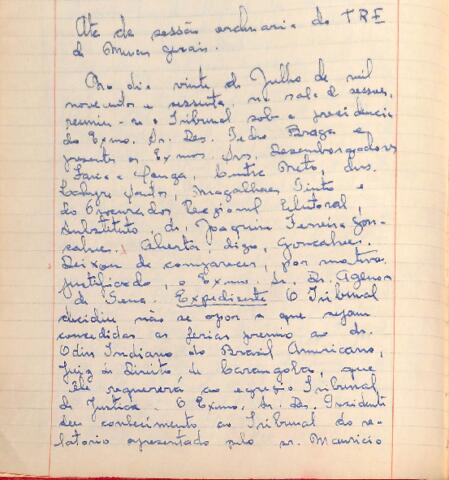 Ata da sessão ordinaria do TRE
de Minas Gerais.
No dia vinte de Julho de mil
novecentos e sessenta, na sala de sessões,
reuniu-se o Tribunal sob a presidencia
do Exmo. Sr. Des. Pedro Braga e
presentes os Exmos. Srs. Desembargadores
Faria e Souza, Onofre Neto, drs.
Santos, Magalhães Pinto e
do Procurador Regional Eleitoral,
substituto, dr. Joaquim Ferreira Gon-
salves. Aberta digo, Goncalves.
Deixou de comparecer, por motivo
justificado, o Exmo. Sr. Dr. Agenor
de Sena. Expediente O Tribunal
decidiu não se opor a que sejam
concedidas as ferias premio ao dr.
Odin Indiano do Brasil Americano,
Juiz de Direito de Carangola, que
ele requererá ao egregio Tribunal
de Justiça. O Exmo. Sr. Des. Presidente
deu conhecimento ao Tribunal do re-
latorio apresentado pelo sr. Mauricio